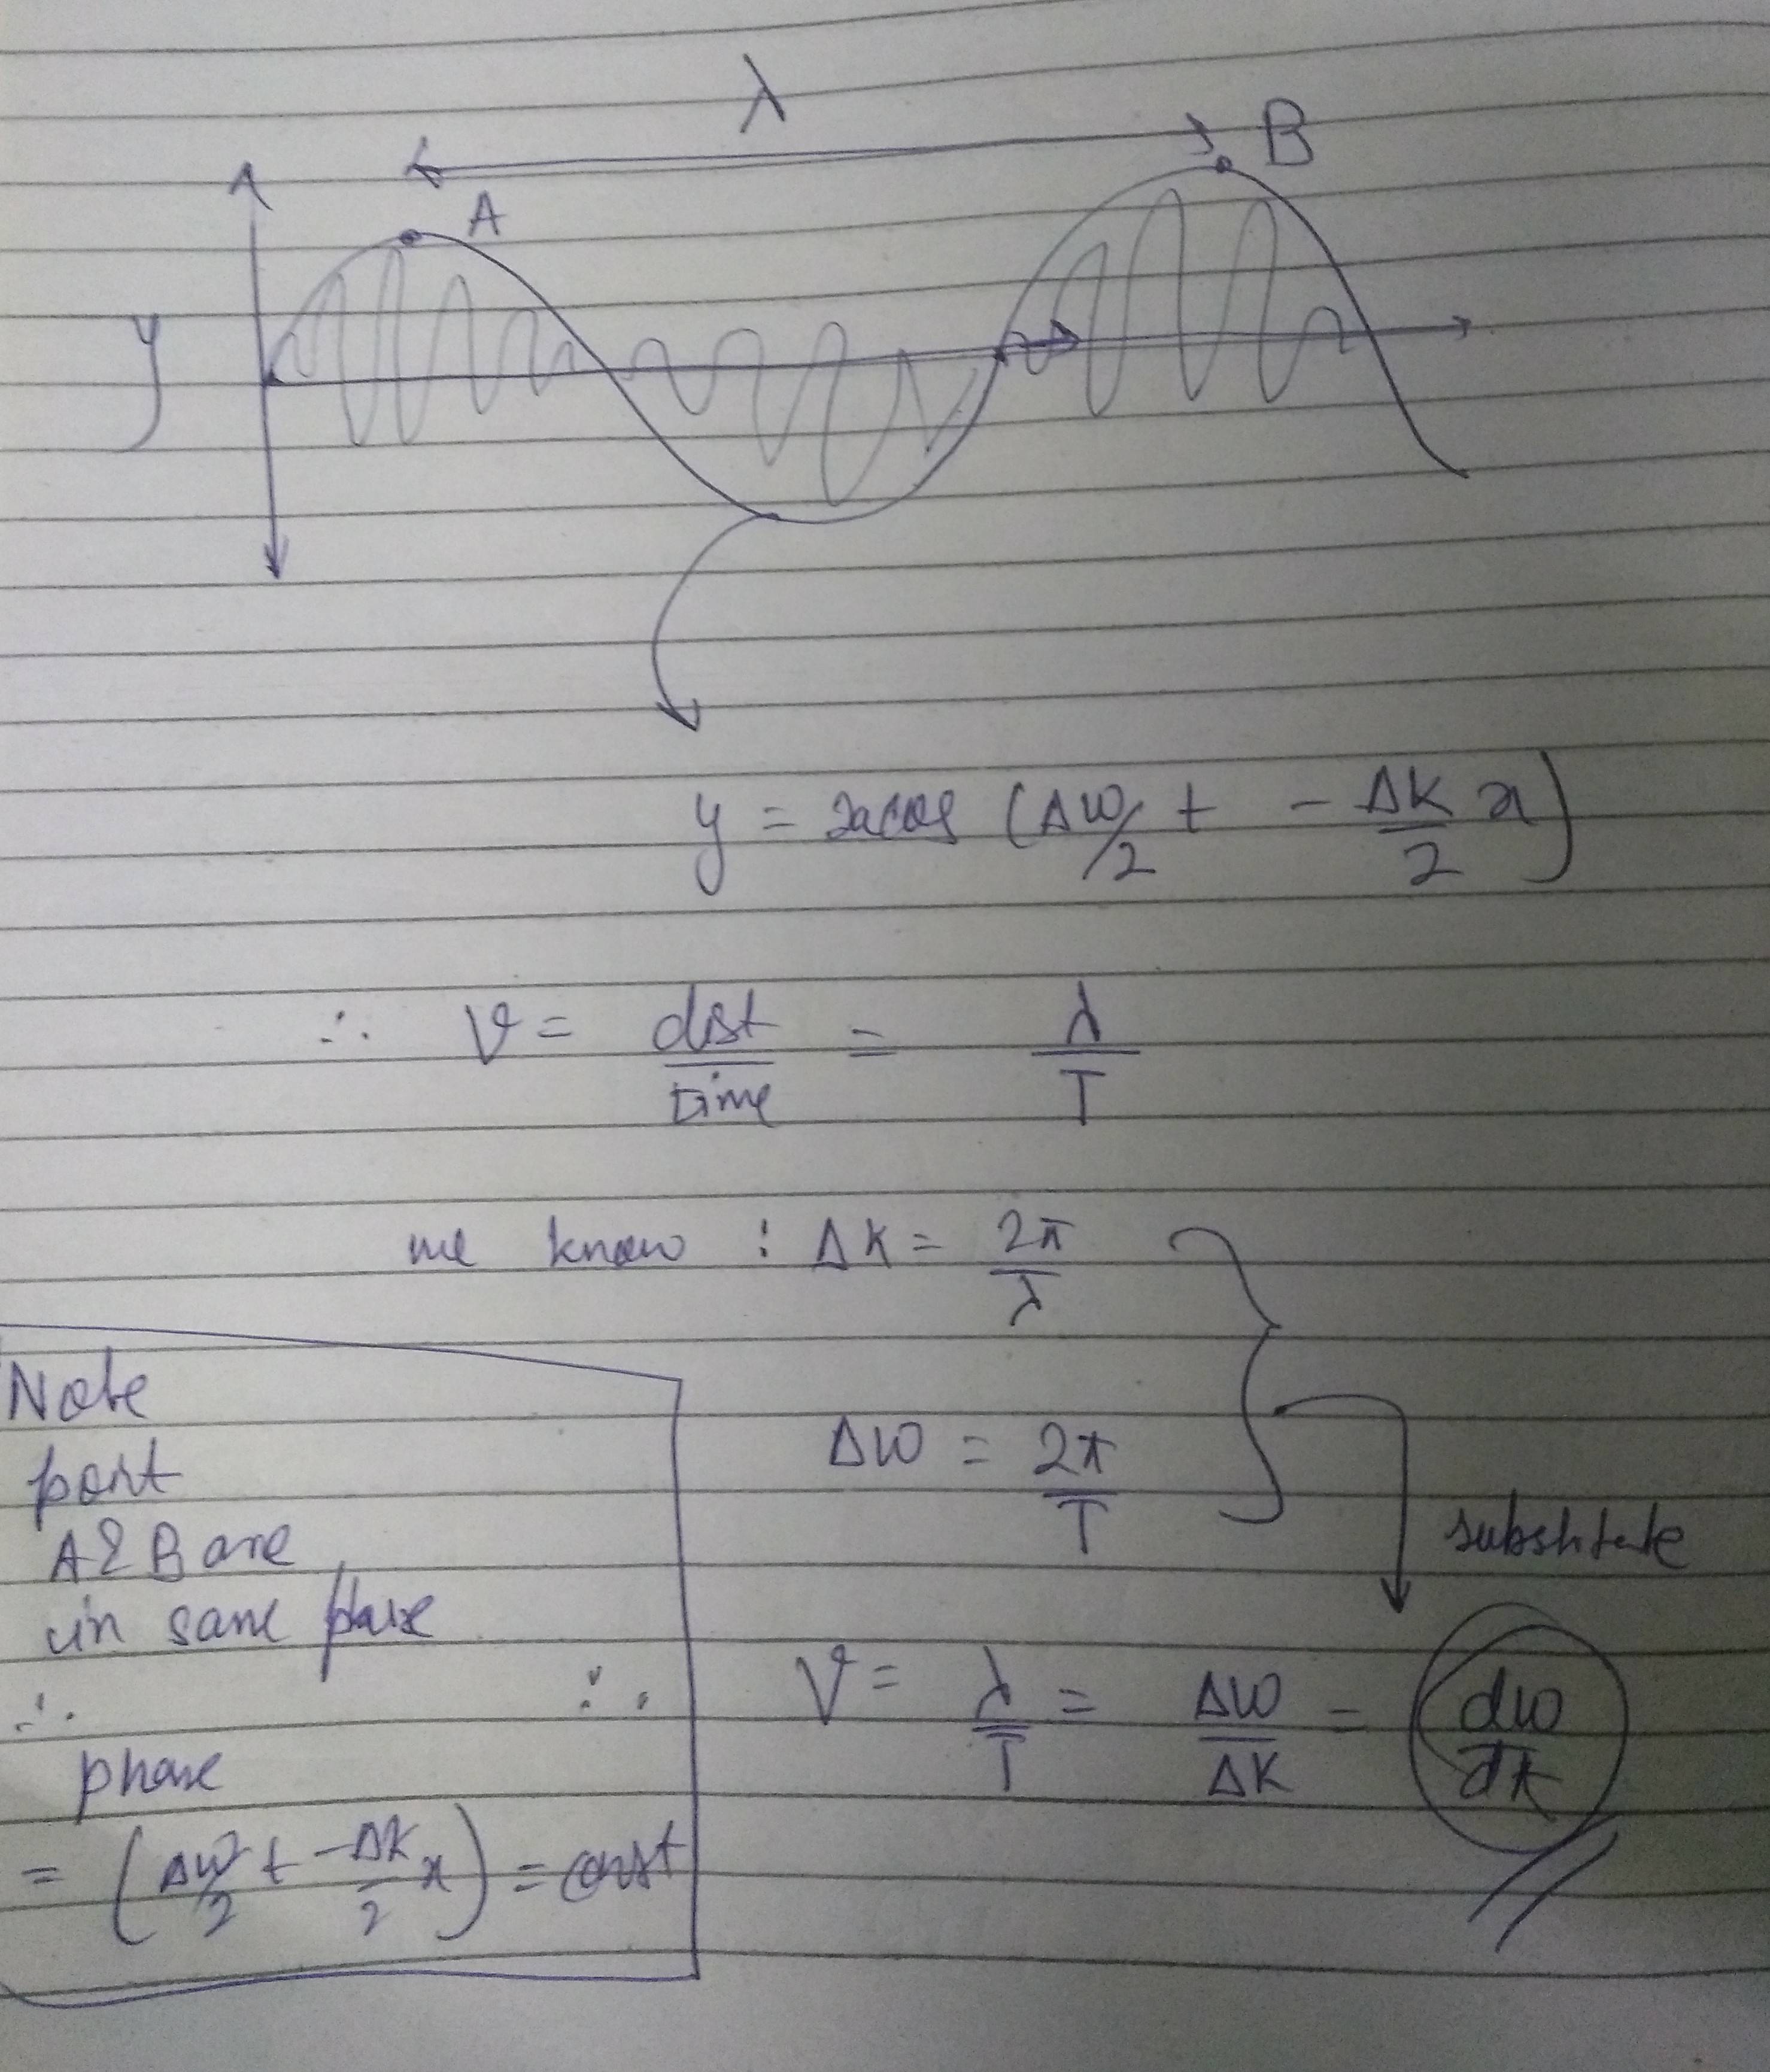 λ
B
A
y
y = 2acos (Δω/2 t - ΔK/2 x)
∴ V = dist/time = λ/T
we know : ΔK = 2π/λ
Δω = 2π/T
substitute
∴ V = λ/T = Δω/ΔK = dω/dk
Note
point
A & B are
in same phase
∴
phase
= (Δω/2 t - Δk/2 x) = const